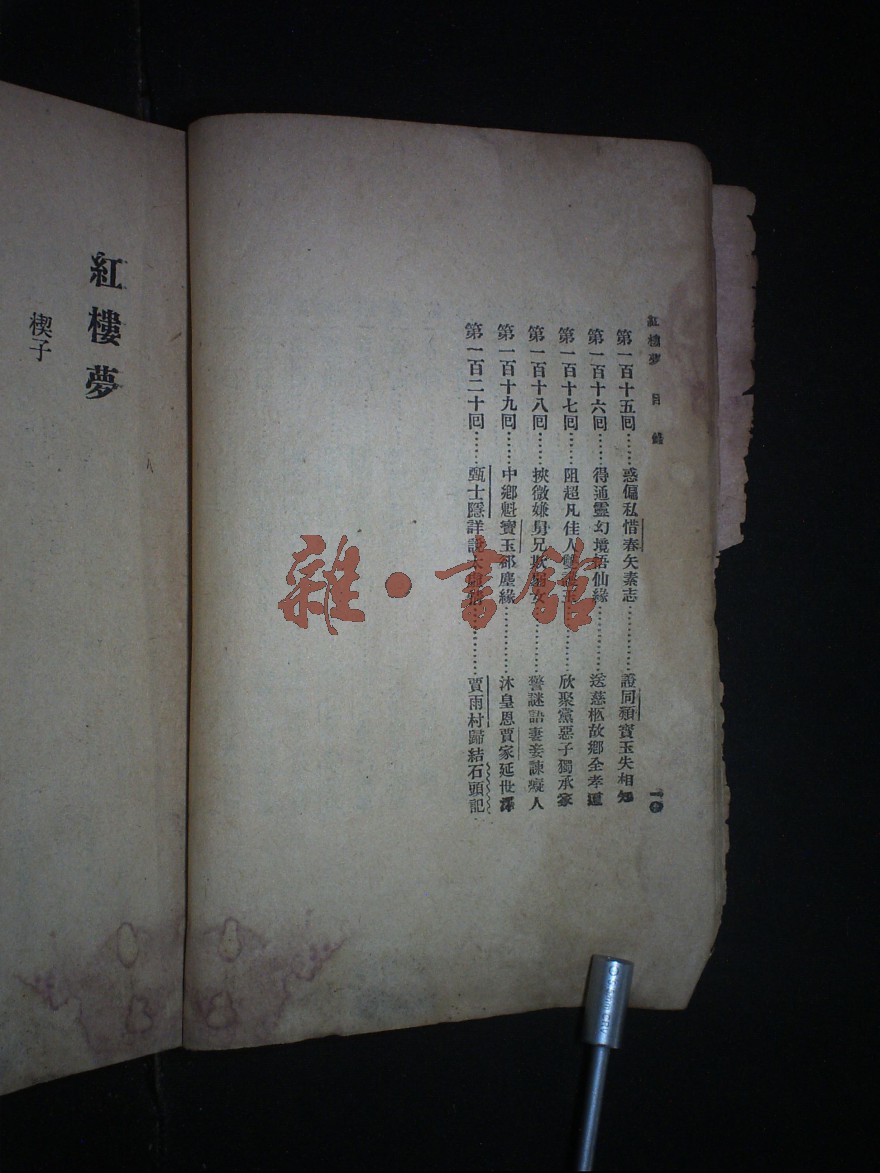 紅樓夢 目錄
第一百十五回……惑偏私惜春矢素志…………證同類寶玉失相知
第一百十六回……得通靈幻境悟仙緣…………送慈柩故鄉全孝道
第一百十七回……阻超凡佳人雙護玉…………欣聚黨惡子獨承家
第一百十八回……挾微嫌舅兄欺弱女…………警謎語妻妾諫癡人
第一百十九回……中鄉魁寶玉卻塵緣…………沐皇恩賈家延世澤
第一百二十回……甄士隱詳說太虛情…………賈雨村歸結石頭記
紅樓夢
楔子
雜·書館